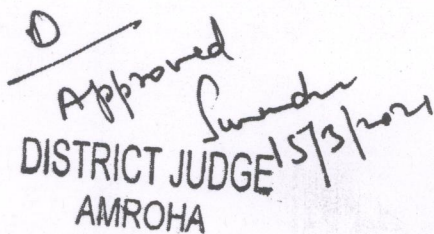 D
Approved
15/3/2021
DISTRICT JUDGE
AMROHA